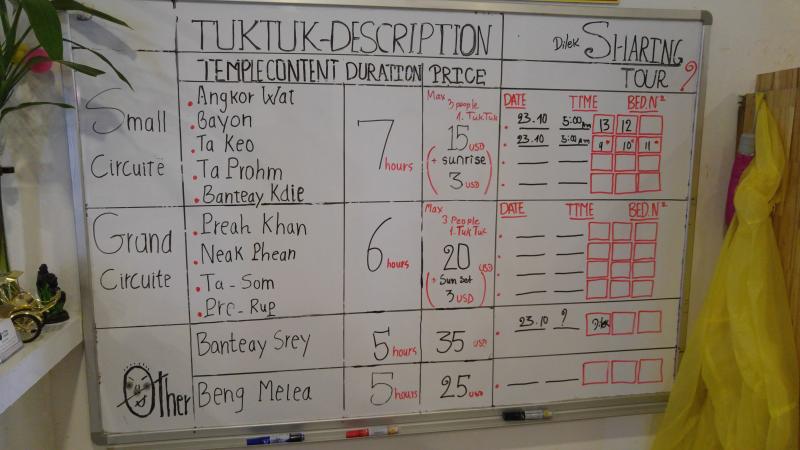 TUKTUK-DESCRIPTION
Dilek SHARING
TOUR ?
TEMPLE CONTENT DURATION PRICE
Small
Circuite
Angkor Wat
Bayon
Ta Keo
Ta Prohm
Banteay Kdie
7 hours
Max
3 people
1. TukTuk
15 USD
(+ sunrise
3 USD)
DATE TIME BED.Nº
23.10 5:00 Am 13 12
23.10 5:00 Am 9 10 11
Grand
Circuite
Preah Khan
Neak Phean
Ta-Som
Pre-Rup
6 hours
Max
3 People
1. TukTuk
20 USD
(+ Sun set
3 USD)
DATE TIME BED.Nº
Other
Banteay Srey
5 hours
35 USD
23.10 ?
Beng Melea
5 hours
25 USD